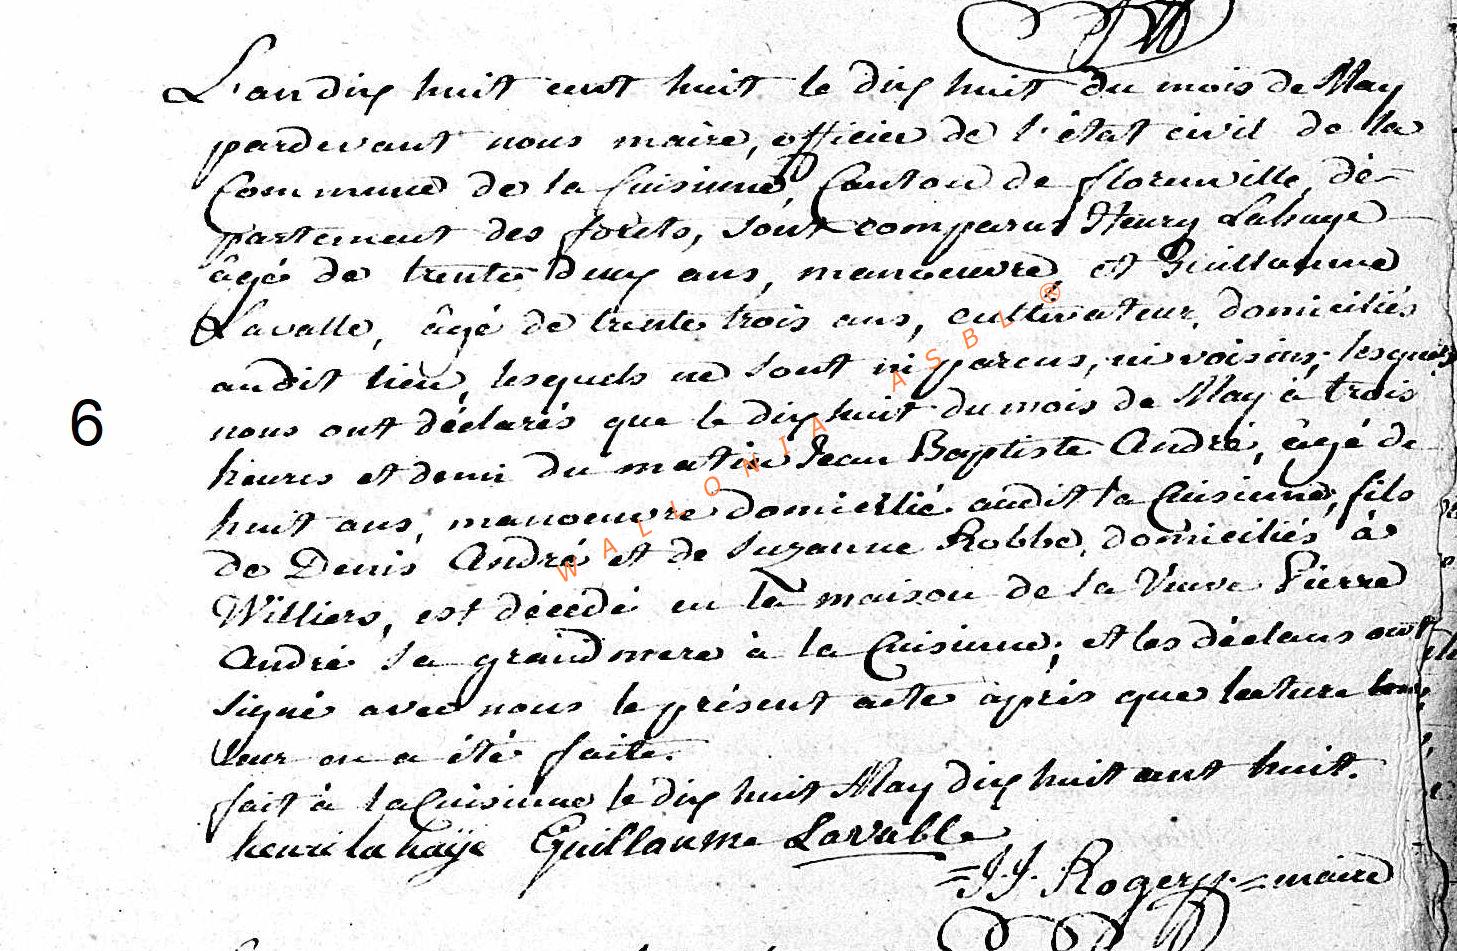 L'an dix huit cent huit le dix huit du mois de May
pardevant nous maire, officier de l'état civil de la
Commune de la Cuisinne, Canton de florenville, dé-
partement des forêts, sont comparus Henry Lahaye
âgé de trente deux ans, manoeuvre et Guillaume
Lavalle, âgé de trente trois ans, cultivateur, domiciliés
audit lieu, lesquels ne sont ni parens, ni voisins; lesquels
nous ont déclarés que le dix huit du mois de May à trois
heures et demi du matin Jean Baptiste André, âgé de
6
huit ans, manoeuvre domicilié audit la Cuisinne, fils
de Denis André et de Suzanne Robbe, domiciliés à
Williers, est décédé en la maison de la Veuve Pierre
André sa grandmere à la Cuisinne; et les déclarans ont
signé avec nous le présent acte après que lecture
leur en a été faite.
fait à la Cuisinne le dix huit May dix huit cent huit.
henri la haÿe Guillaume Lavalle
=J.J. Rogery.= maire
WALLONIA ASBL ®